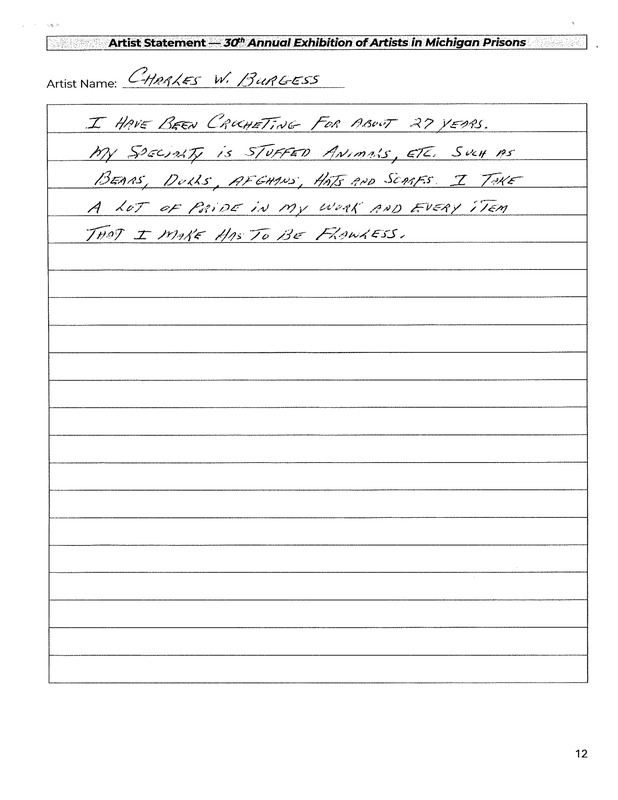 Artist Statement — 30th Annual Exhibition of Artists in Michigan Prisons
Artist Name: CHARLES W. BURGESS
I HAVE BEEN CROCHETING FOR ABOUT 27 YEARS.
MY SPECIALTY IS STUFFED ANIMALS, ETC. SUCH AS
BEARS, DOLLS, AFGHANS, HATS AND SCARFS. I TAKE
A LOT OF PRIDE IN MY WORK AND EVERY ITEM
THAT I MAKE HAS TO BE FLAWLESS.
12